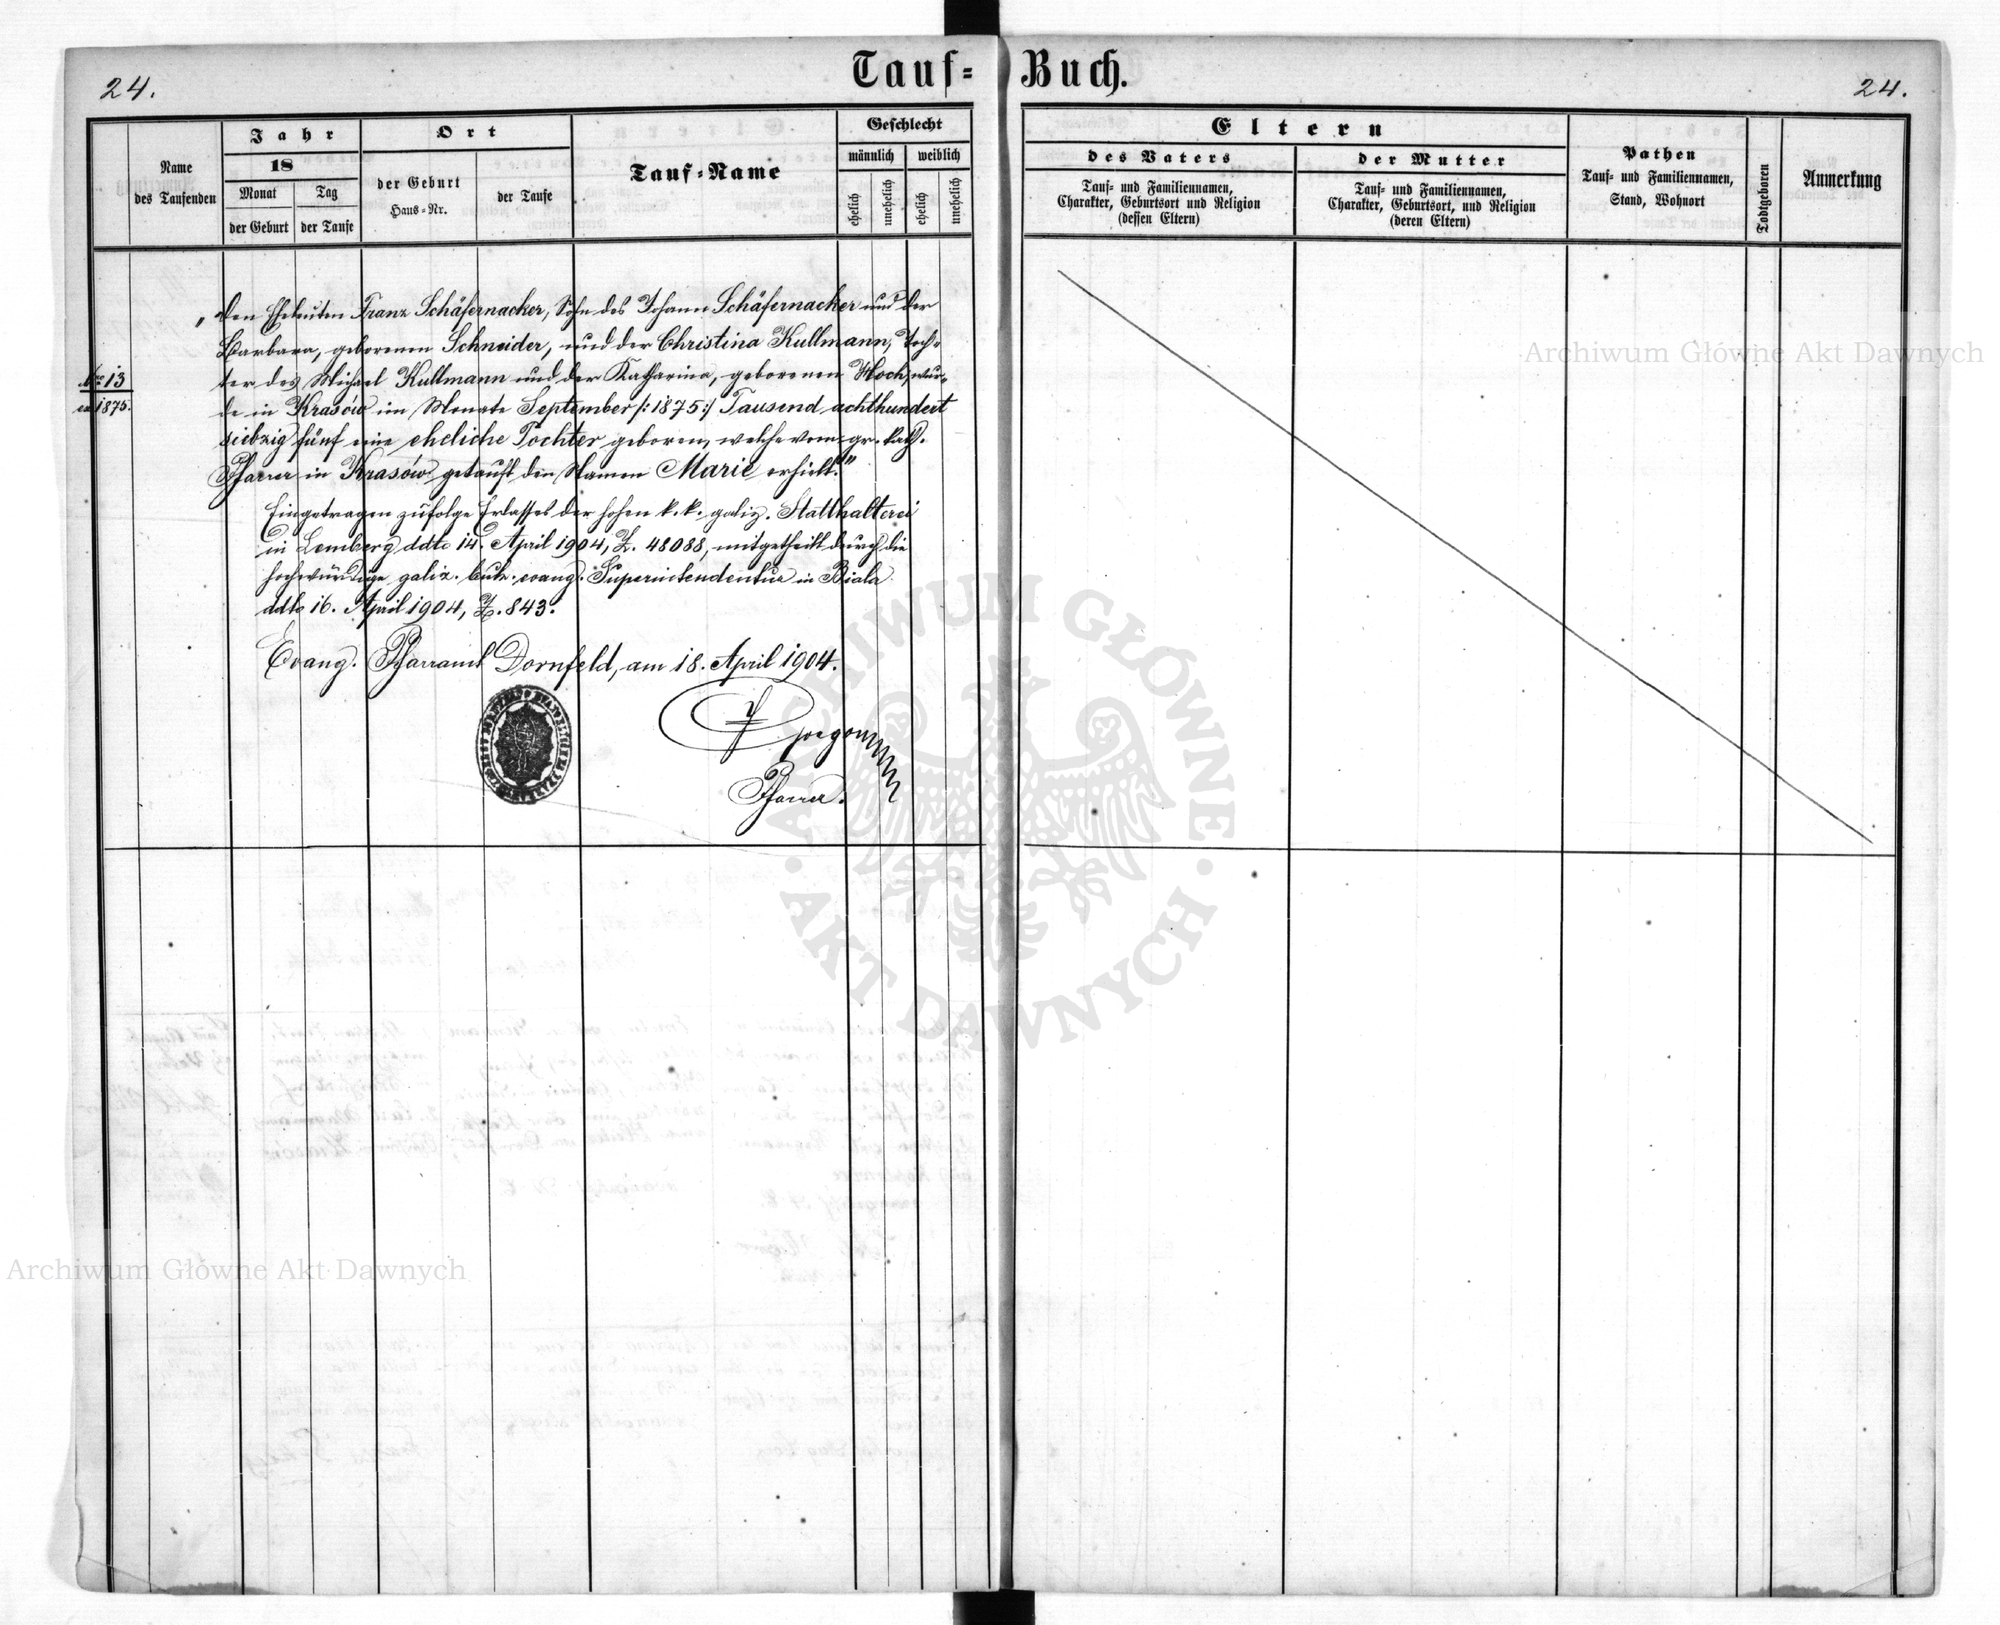 24.
Tauf-Buch.
24.
Name
des Taufenden
Jahr
18
Monat
der Geburt
Tag
der Taufe
Ort
der Geburt
Haus-Nr.
der Taufe
Tauf-Name
Geschlecht
männlich
weiblich
ehelich
unehelich
ehelich
unehelich
Eltern
des Vaters
Tauf- und Familiennamen,
Charakter, Geburtsort und Religion
(dessen Eltern)
der Mutter
Tauf- und Familiennamen,
Charakter, Geburtsort, und Religion
(deren Eltern)
Pathen
Tauf- und Familiennamen,
Stand, Wohnort
Todtgeboren
Anmerkung
Nro 13
ex 1875.
„Den Eheleuten Franz Schäfernacker, Sohn des Johann Schäfernacker und der
Barbara, geborenen Schneider, und der Christina Kullmann, Toch-
ter des Michael Kullmann und der Katharina, geborenen Hoch, wur-
de in Krasów im Monate September /:1875:/ Tausend achthundert
siebzig fünf eine eheliche Tochter geboren, welche vom gr. kath.
Pfarrer in Krasów getauft den Namen Marie erhielt."
Eingetragen zufolge Erlasses der hohen k. k. galiz. Statthalterei
in Lemberg ddto 14. April 1904, Z. 48088, mitgetheilt durch die
hochwürdige galiz. buk. evang. Superintendentur in Biala
ddto 16. April 1904, Z. 843.
Evang. Pfarramt Dornfeld, am 18. April 1904.
Pfarrer.
Archiwum Główne Akt Dawnych
ARCHIWUM GŁÓWNE
AKT DAWNYCH
Archiwum Główne Akt Dawnych